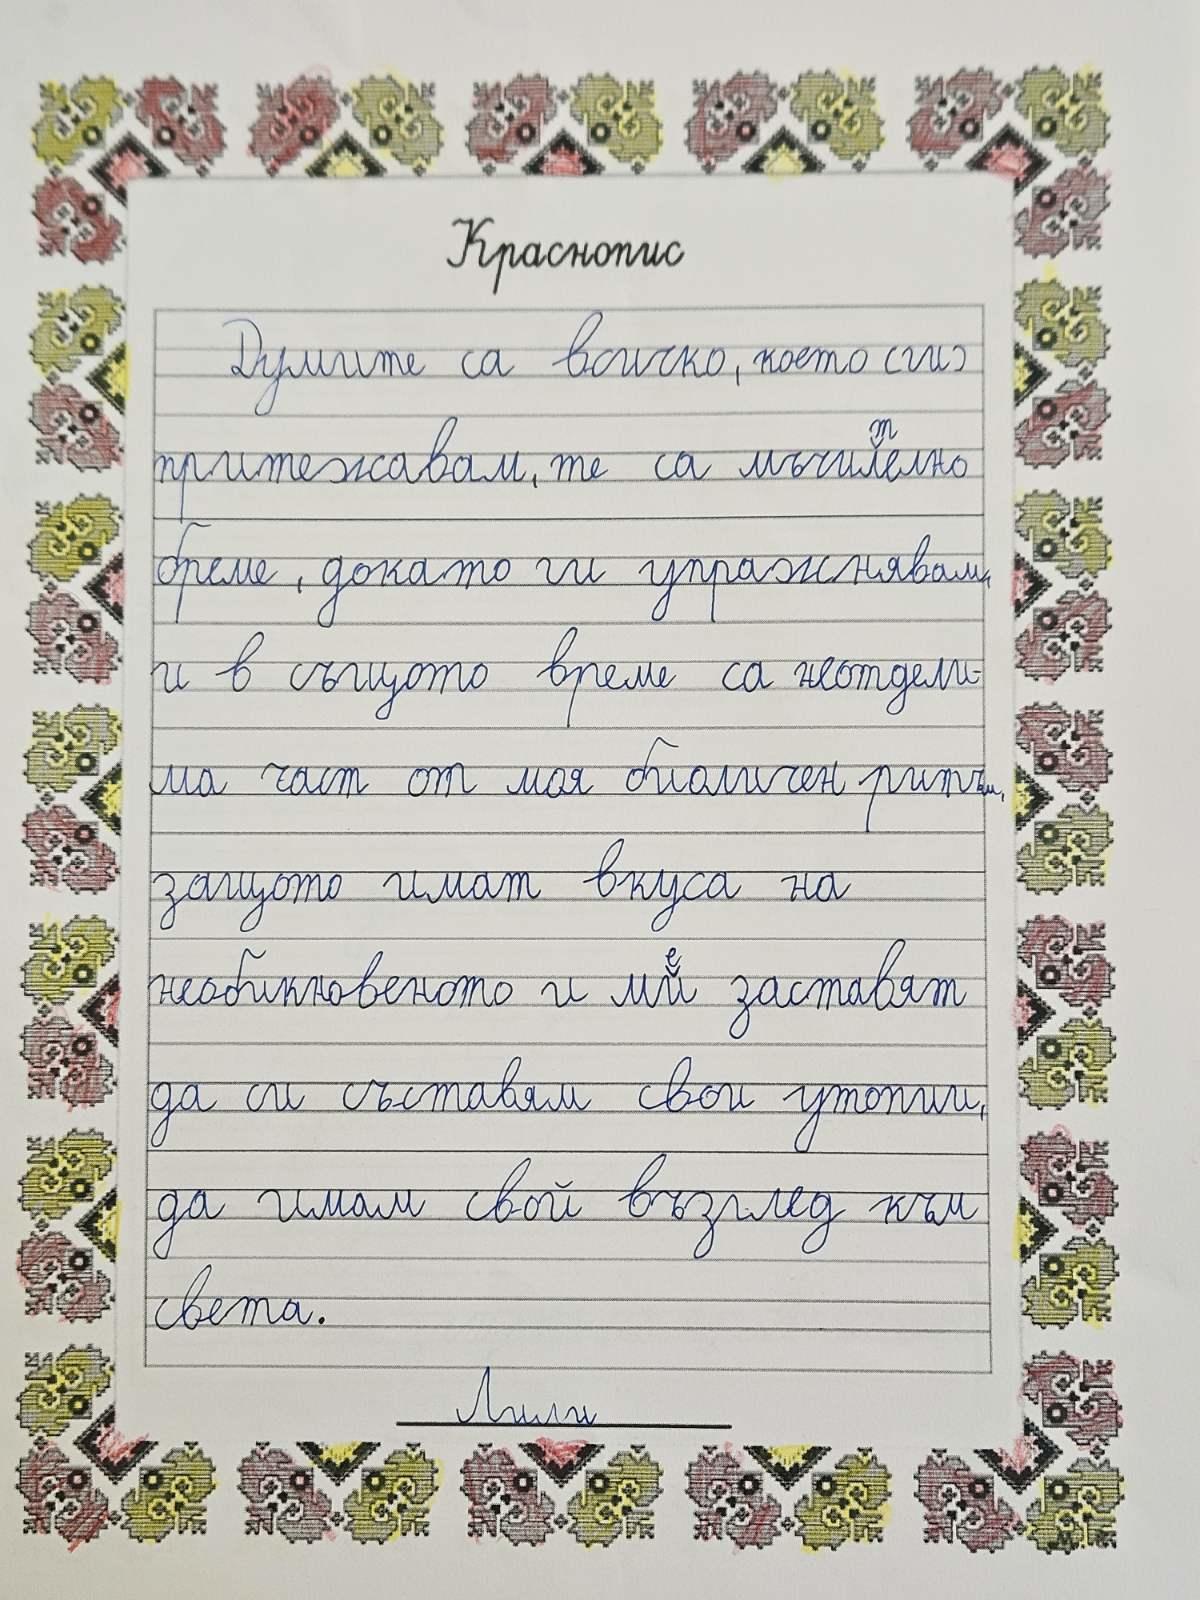 Краснопис
Думите са всичко, което (ги)
притежавам, те са мъчително
бреме, докато ги упражнявам,
и в същото време са неотдели-
ма част от моя биоличен ритъм,
защото имат вкуса на
необикновеното и ме заставят
да си съставям свои утопии,
да имам свой възглед към
света.
Лили